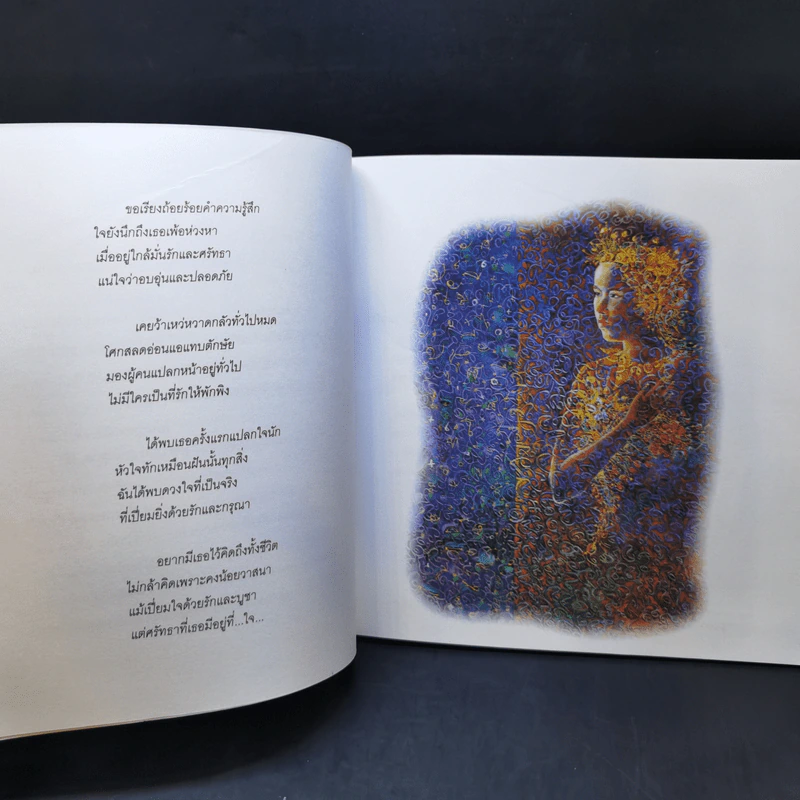 ขอเรียงถ้อยร้อยคำความรู้สึก
ใจยังนึกถึงเธอเพ้อห่วงหา
เมื่ออยู่ใกล้มั่นรักและศรัทธา
แน่ใจว่าอบอุ่นและปลอดภัย
เคยว้าเหว่หวาดกลัวทั่วไปหมด
โศกสลดอ่อนแอแทบตักษัย
มองผู้คนแปลกหน้าอยู่ทั่วไป
ไม่มีใครเป็นที่รักให้พักพิง
ได้พบเธอครั้งแรกแปลกใจนัก
หัวใจทักเหมือนฝันนั้นทุกสิ่ง
ฉันได้พบดวงใจที่เป็นจริง
ที่เปี่ยมยิ่งด้วยรักและกรุณา
อยากมีเธอไว้คิดถึงทั้งชีวิต
ไม่กล้าคิดเพราะคงน้อยวาสนา
แม้เปี่ยมใจด้วยรักและบูชา
แต่ศรัทธาที่เธอมีอยู่ที่...ใจ...